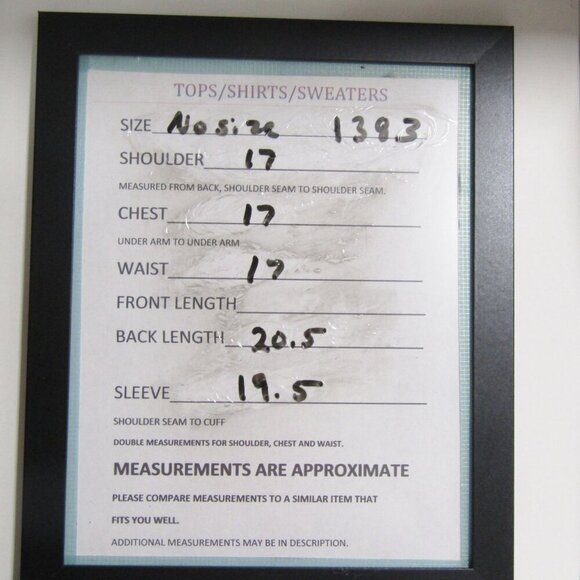 TOPS/SHIRTS/SWEATERS
SIZE No size 1393
SHOULDER 17
MEASURED FROM BACK, SHOULDER SEAM TO SHOULDER SEAM.
CHEST 17
UNDER ARM TO UNDER ARM
WAIST 17
FRONT LENGTH
BACK LENGTH 20.5
SLEEVE 19.5
SHOULDER SEAM TO CUFF
DOUBLE MEASUREMENTS FOR SHOULDER, CHEST AND WAIST.
MEASUREMENTS ARE APPROXIMATE
PLEASE COMPARE MEASUREMENTS TO A SIMILAR ITEM THAT
FITS YOU WELL.
ADDITIONAL MEASUREMENTS MAY BE IN DESCRIPTION.